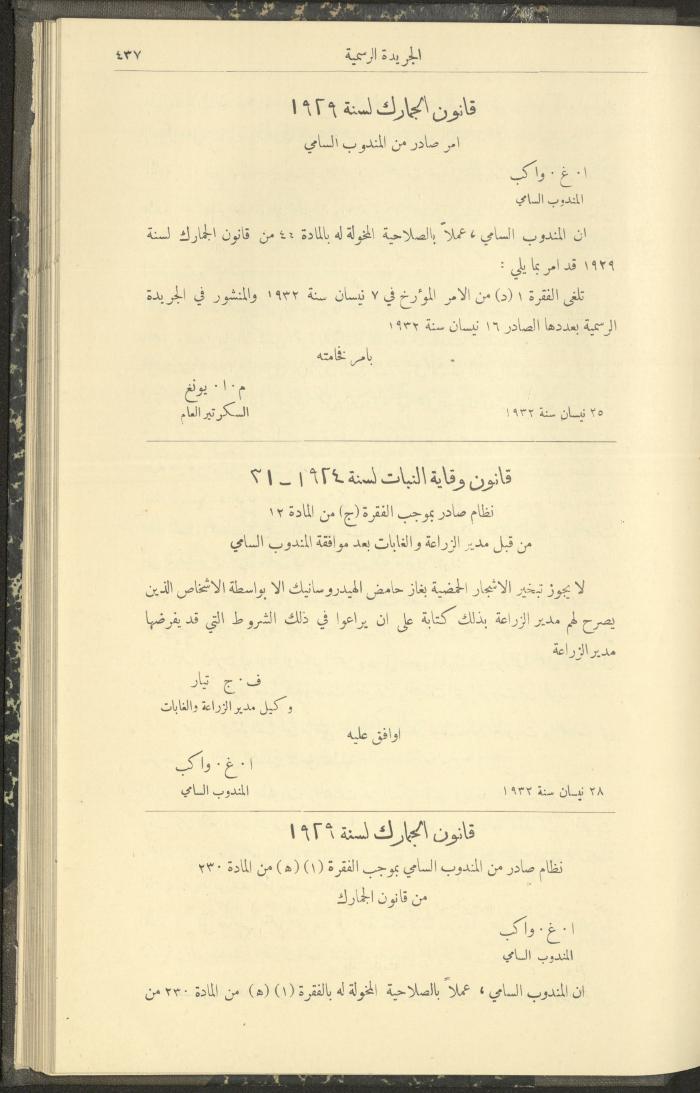 الجريدة الرسمية ٤٣٧
قانون الجمارك لسنة ١٩٢٩
امر صادر من المندوب السامي
ا٠ غ٠ واكب
المندوب السامي
ان المندوب السامي، عملاً بالصلاحية المخولة له بالمادة ٤٤ من قانون الجمارك لسنة
١٩٢٩ قد امر بما يلي :
تلغى الفقرة ١ (د) من الامر المؤرخ في ٧ نيسان سنة ١٩٣٢ والمنشور في الجريدة
الرسمية بعددها الصادر ١٦ نيسان سنة ١٩٣٢
بامر فخامته
م٠ا٠ يونغ
٢٥ نيسان سنة ١٩٣٢ السكرتير العام
قانون وقاية النبات لسنة ١٩٢٤ـ٣١
نظام صادر بموجب الفقرة (ج) من المادة ١٢
من قبل مدير الزراعة والغابات بعد موافقة المندوب السامي
لا يجوز تبخير الاشجار الحمضية بغاز حامض الهيدروسانيك الا بواسطة الاشخاص الذين
يصرح لهم مدير الزراعة بذلك كتابة على ان يراعوا في ذلك الشروط التي قد يفرضها
مدير الزراعة
ف٠ ج تيار
وكيل مدير الزراعة والغابات
اوافق عليه
ا٠ غ٠ واكب
٢٨ نيسان سنة ١٩٣٢ المندوب السامي
قانون الجمارك لسنة ١٩٢٩
نظام صادر من المندوب السامي بموجب الفقرة (١) (ه) من المادة ٢٣٠
من قانون الجمارك
ا٠ غ٠ واكب
المندوب السامي
ان المندوب السامي، عملاً بالصلاحية المخولة له بالفقرة (١) (ه) من المادة ٢٣٠ من